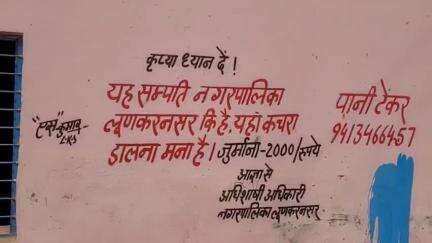 कृप्या ध्यान दें !
यह सम्पति नगरपालिका
लूणकरनसर कि है, यहां कचरा
डालना मना है। जुर्माना-2000/रूपये
आज्ञा से
अधिशाषी अधिकारी
नगरपालिका लूणकरनसर
पानी टेंकर
9413466457